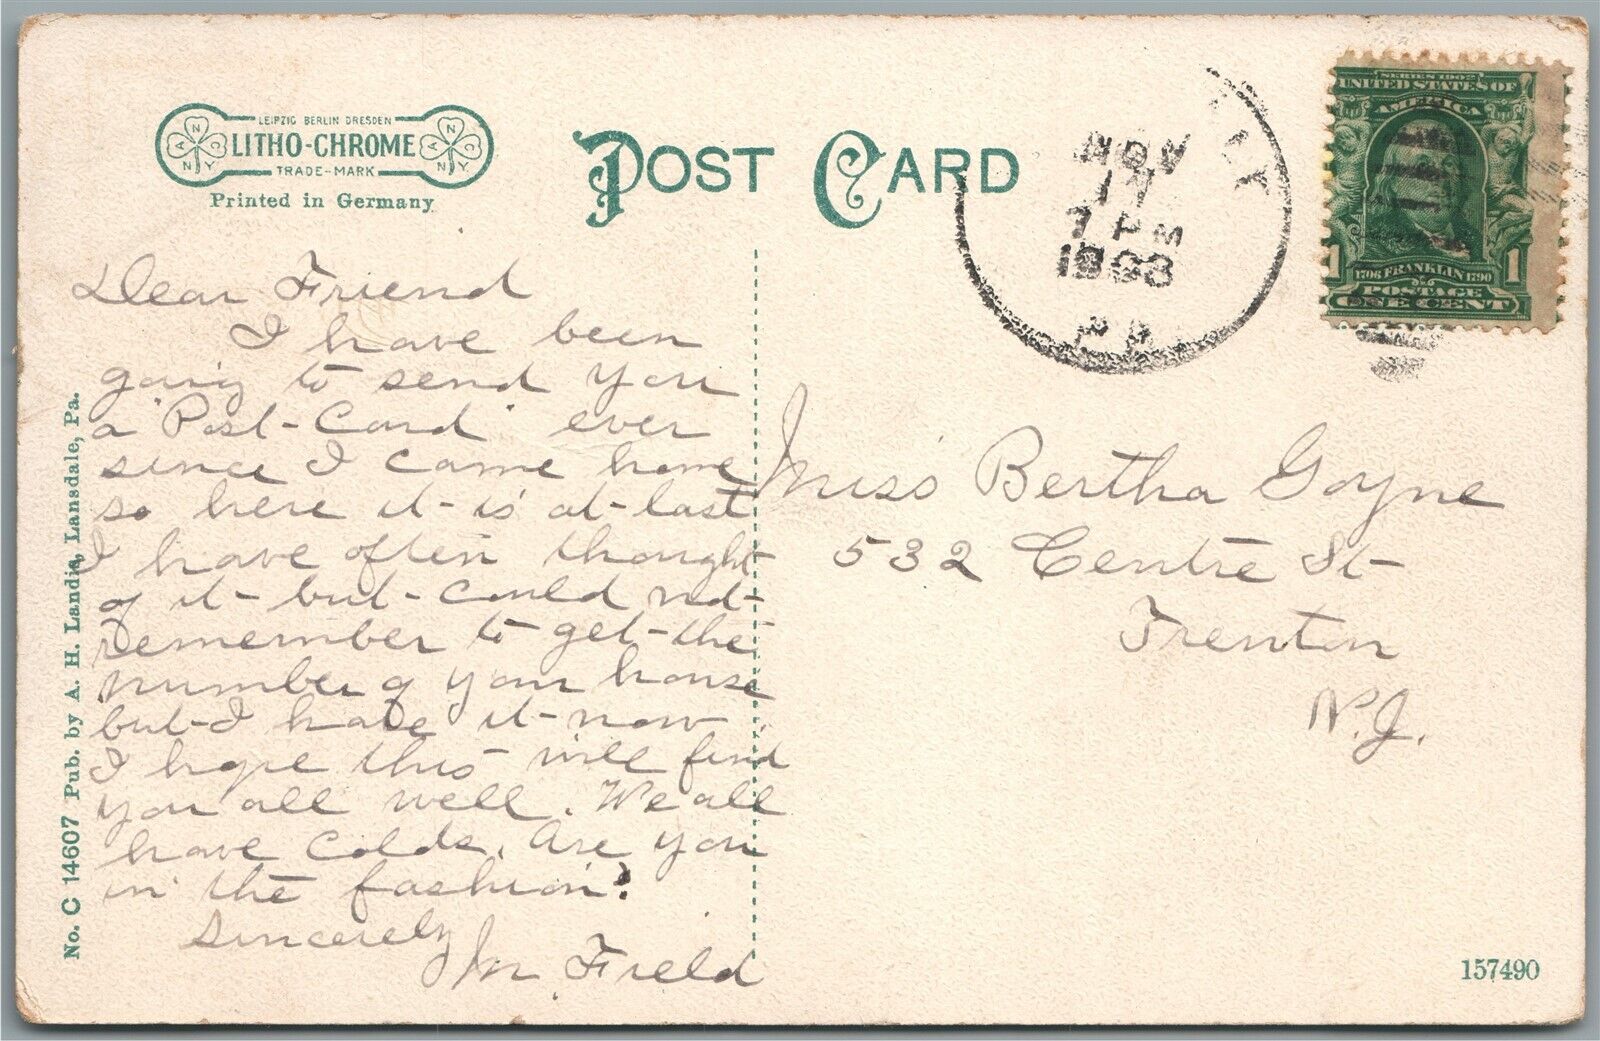 LEIPZIG BERLIN DRESDEN
LITHO-CHROME
TRADE-MARK
Printed in Germany
POST CARD
NOV
17
7 PM
PA
SERIES 1902
UNITED STATES OF
AMERICA
1706 FRANKLIN 1790
1 1
POSTAGE
ONE CENT
Dear Friend
I have been
going to send you
a "Post-Card" ever
since I came home
so here it is at last
I have often thought
of it but could not
remember to get the
number of your house
but I have it now.
I hope this will find
you all well. We all
have colds. Are you
in the fashion?
Sincerely
M Field
Miss Bertha Goyne
532 Centre St
Trenton
N.J.
No. C 14607 Pub. by A. H. Landis, Lansdale, Pa.
157490